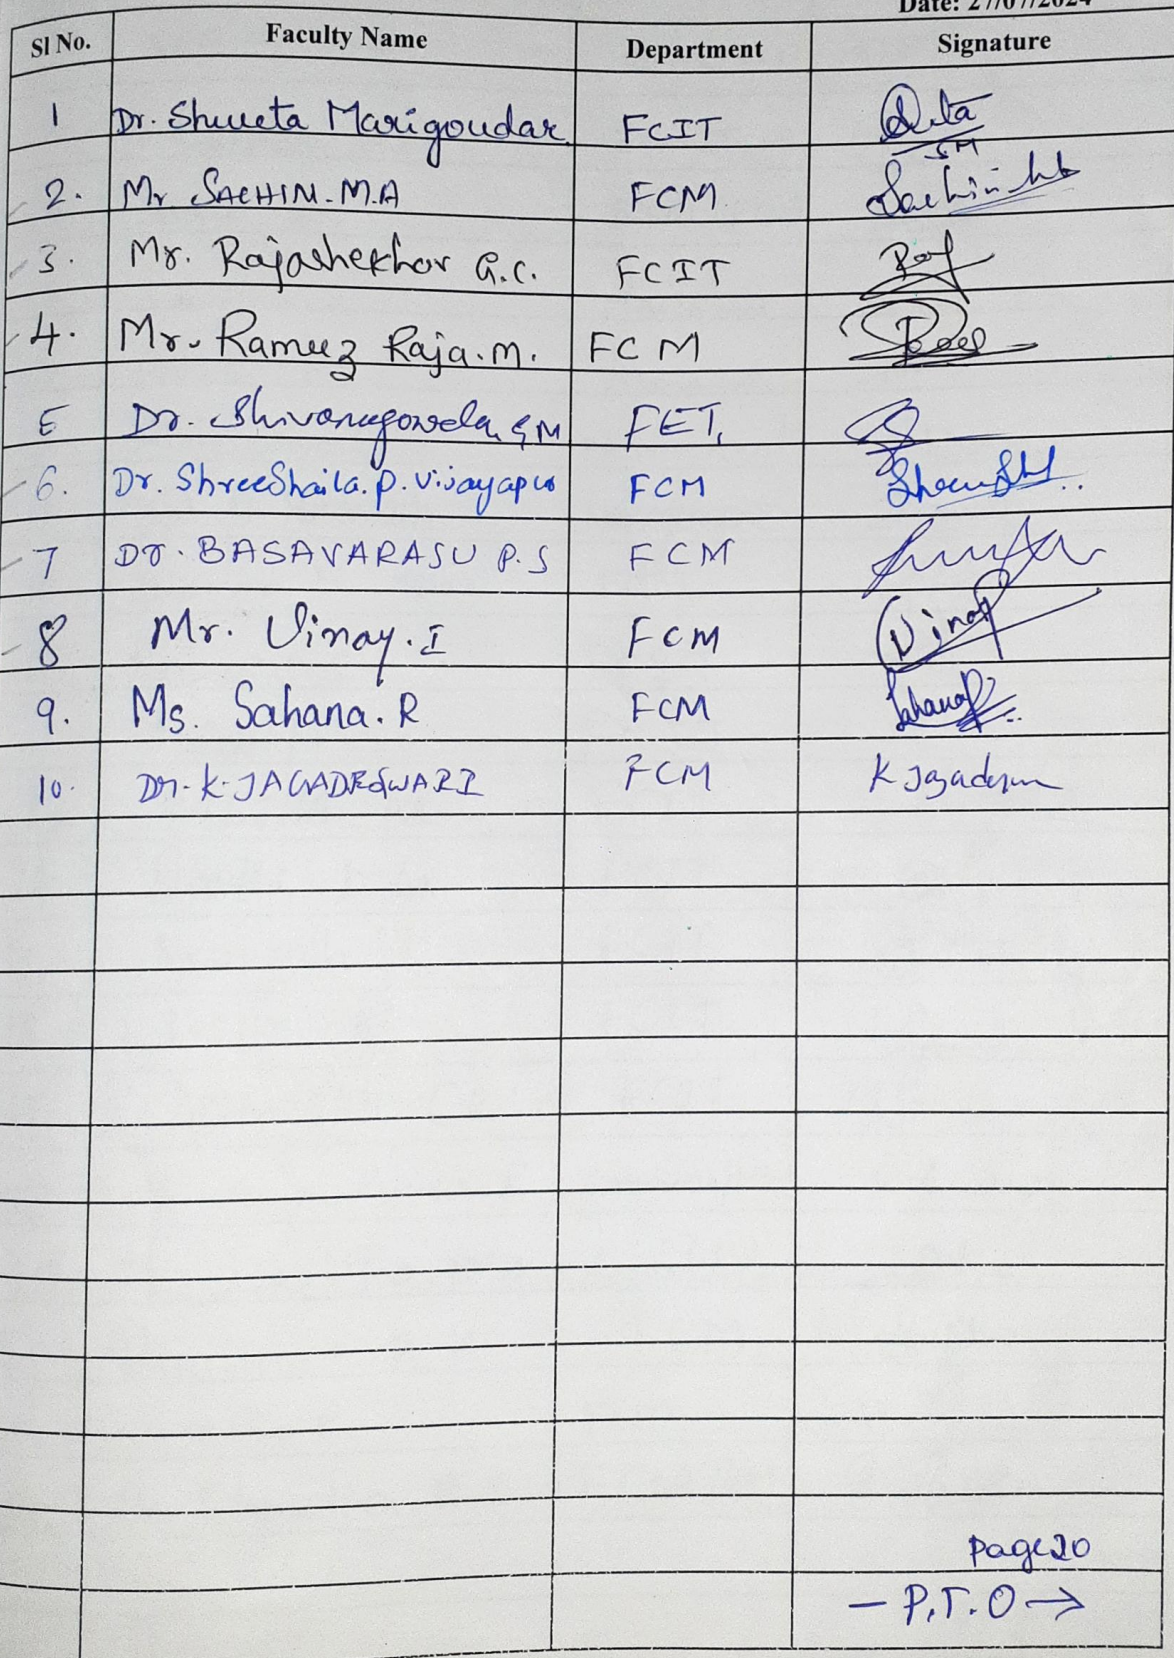 Date: 27/07/2024
Sl No. Faculty Name Department Signature
1 Dr. Shweta Marigoudar FCIT
SM
2. Mr SACHIN.M.A FCM Sachin
3. Mr. Rajashekhar G.C. FCIT Raj
4. Mr. Rameez Raja.M. FCM
5 Dr. Shivanagowda G M FET.
6. Dr. ShreeShaila.P.Vijayapur FCM
7 Dr. BASAVARAJU P.S FCM
8 Mr. Vinay.I FCM Vinay
9. Ms. Sahana.R FCM Sahana
10. Dr. K. JAGADEESWARI FCM K Jagadeswari
Page 20
— P.T.O →